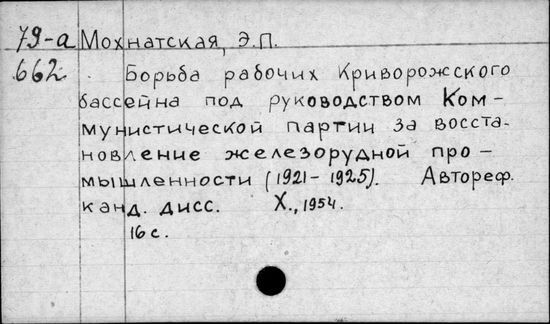 79-а Мохнатская, Э.П.
662 Борьба рабочих Криворожского
бассейна под руководством Ком-
мунистической партии за восста-
новление железорудной про-
мышленности (1921-1925). Автореф.
канд. дисс. Х., 1954.
16 с.